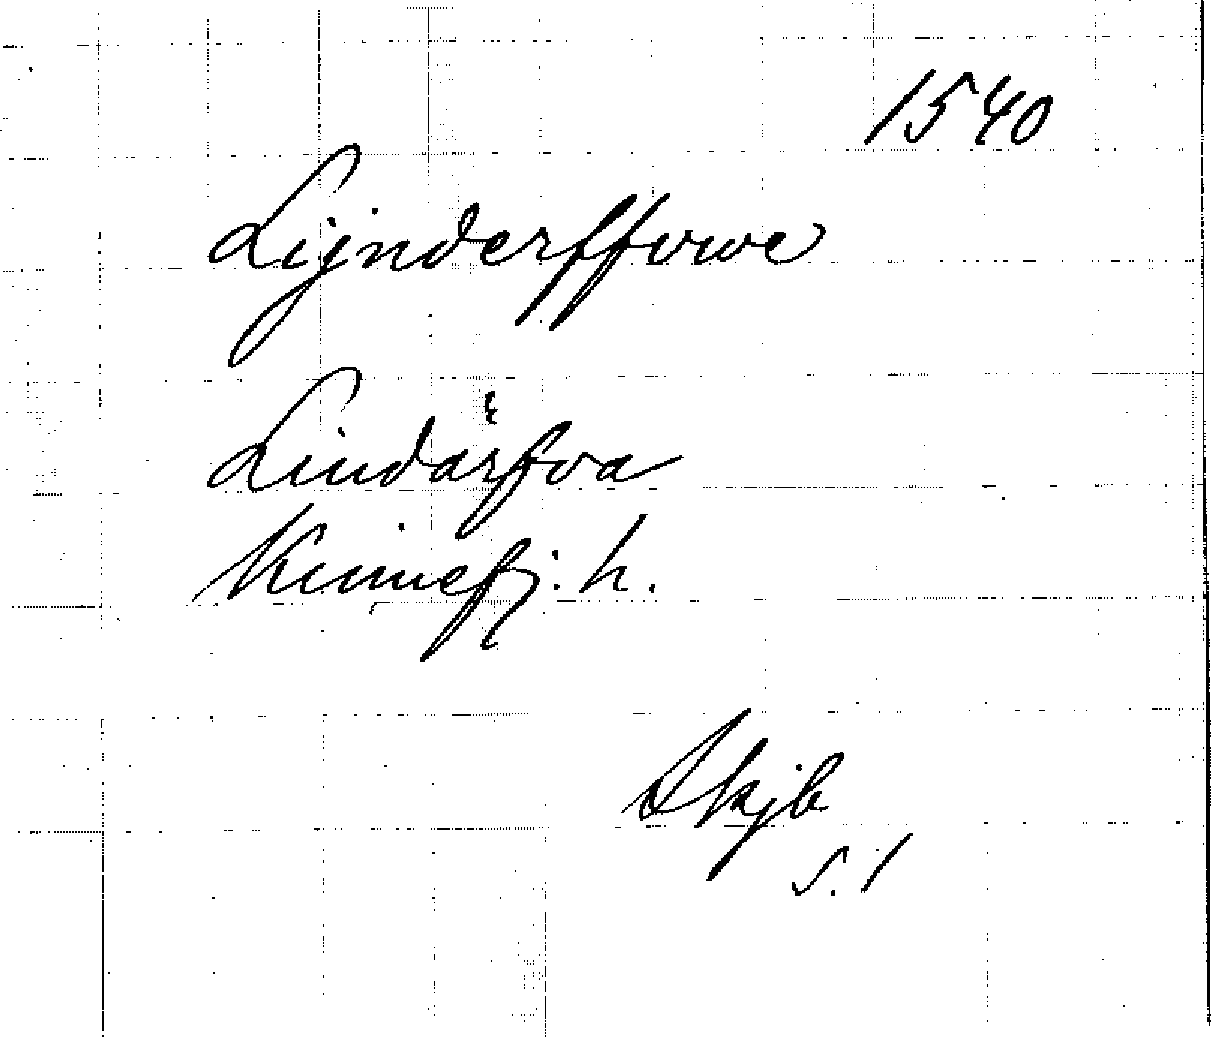 1540
Lijnderffowe
Lindärfva
Kinnefj. h.
Skjb
s. 1